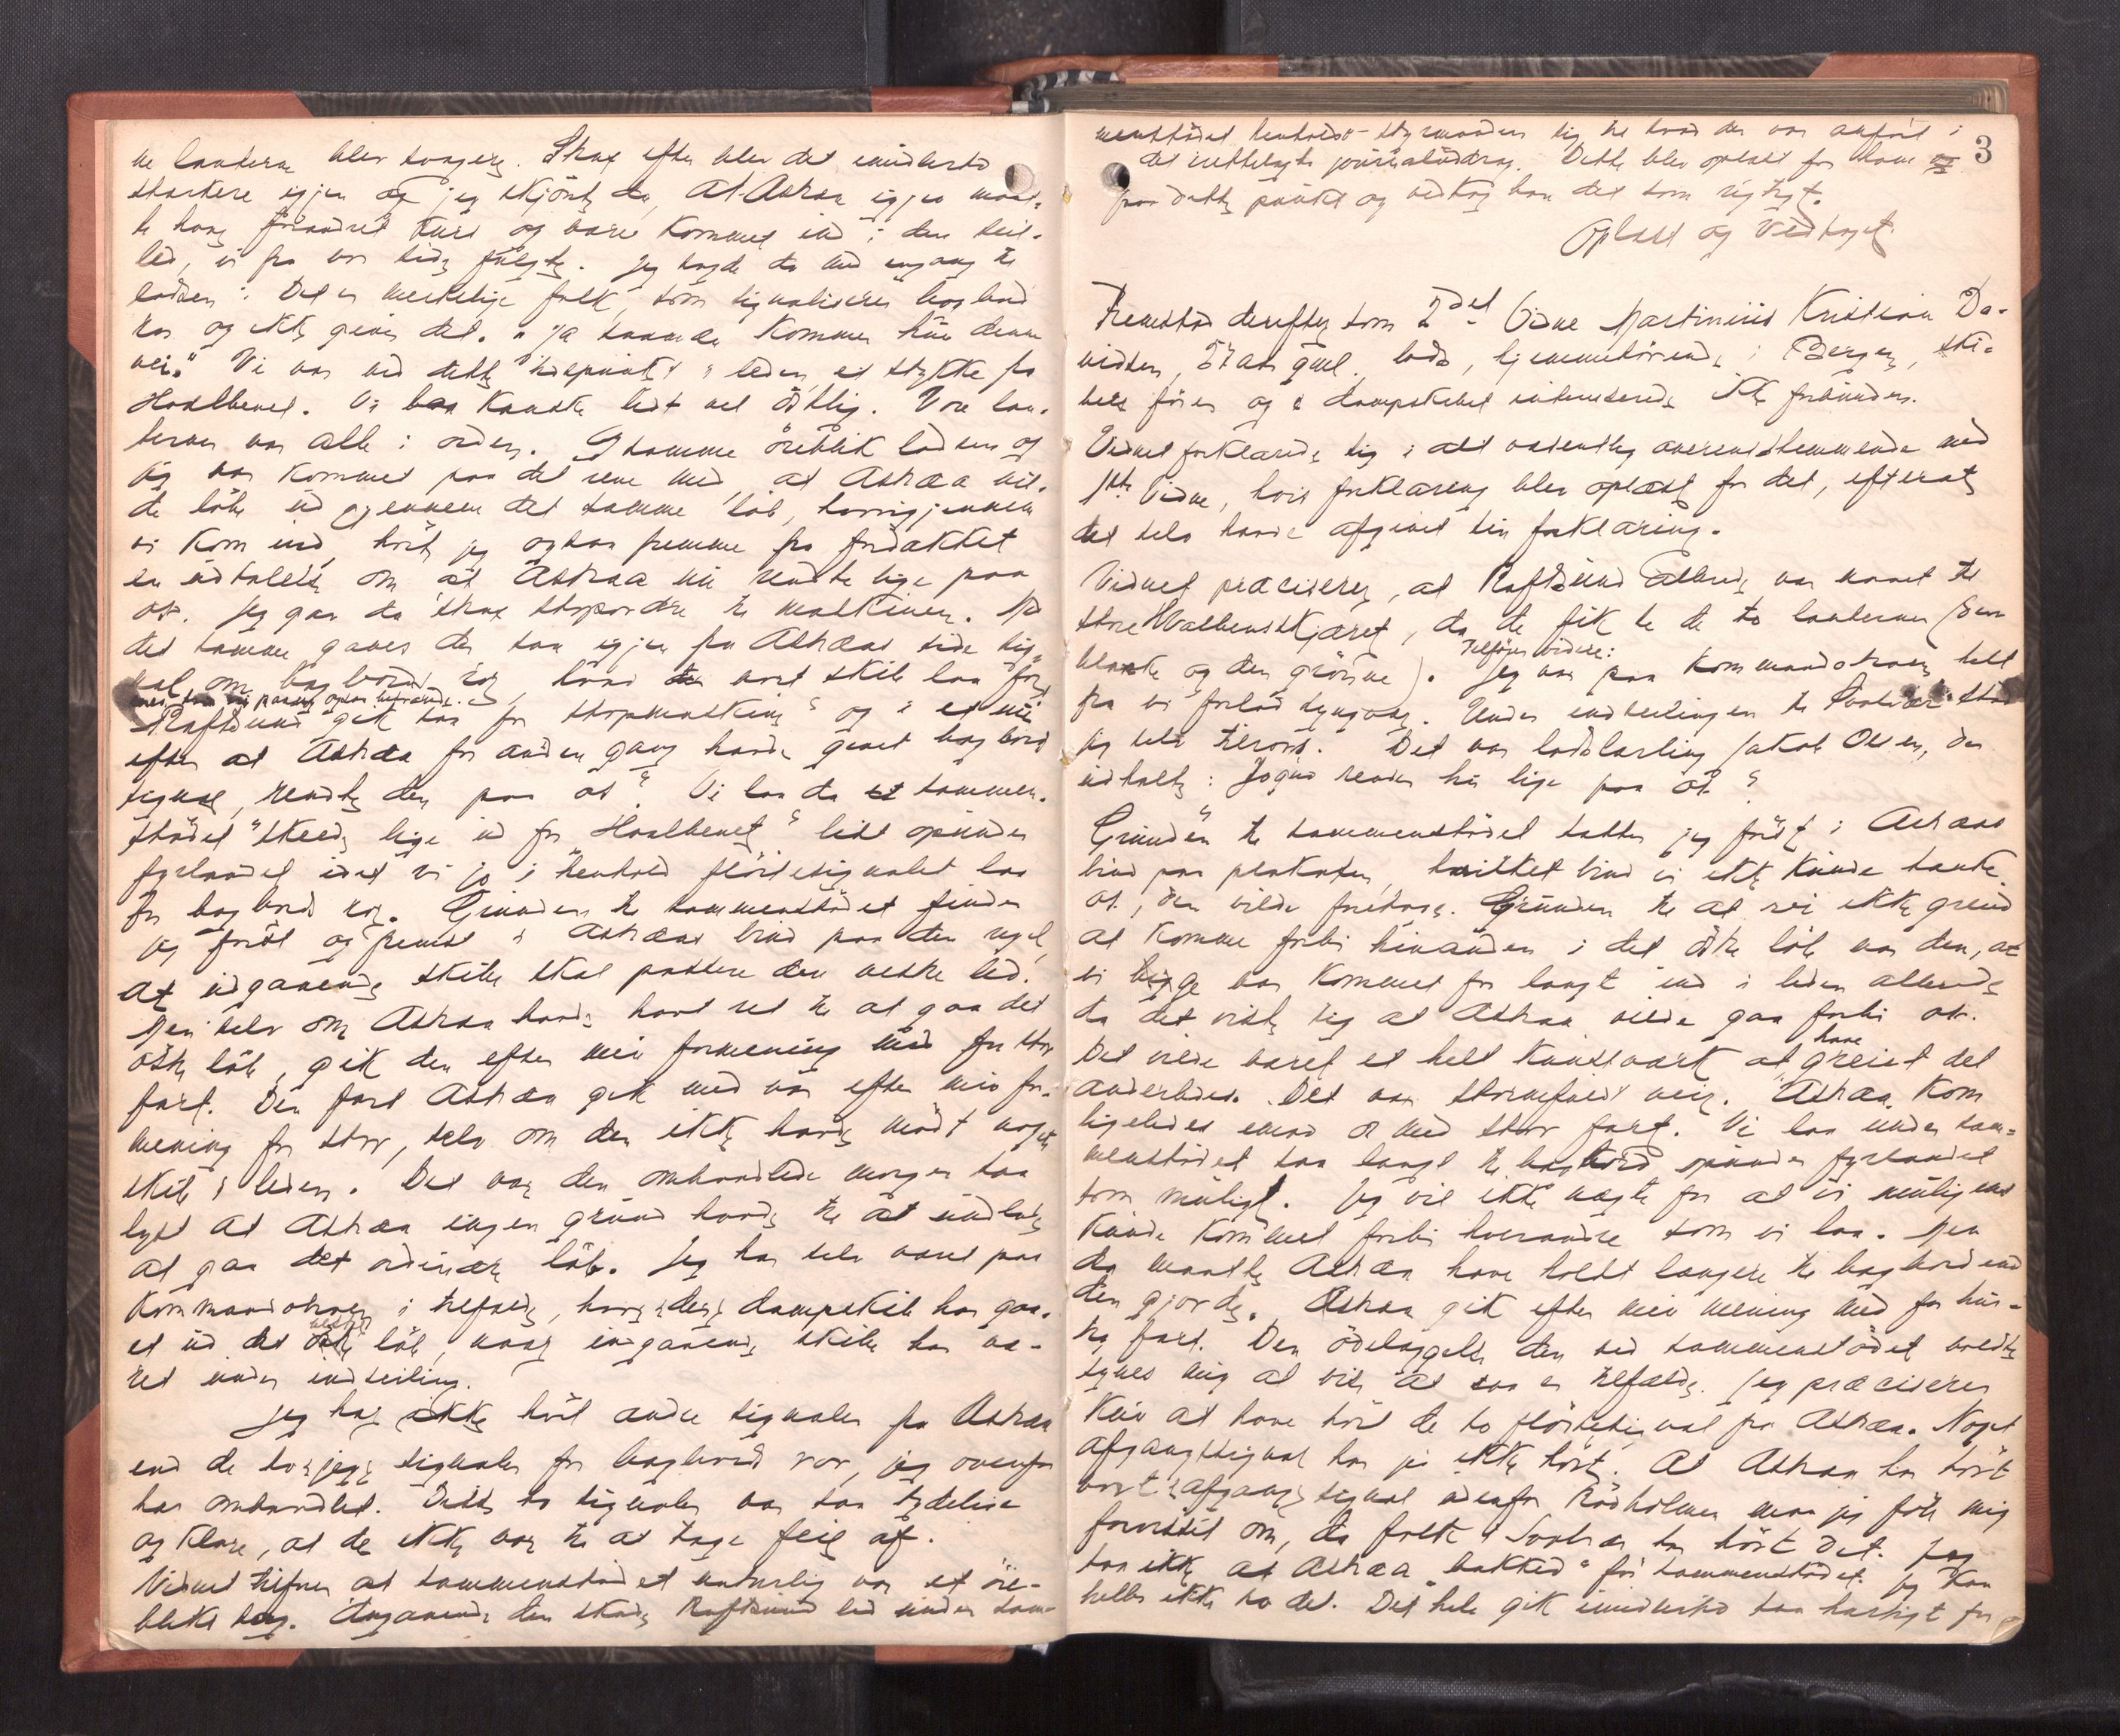 ne lanterne blev svagere. Strax efter blev det imidlertid
sterkere igjen og jeg skjönte da, at Astræa igjen maat-
te have forandret kurs og være kommet ind i den sei-
led, vi fra vor side fulgte. Jeg sagde da med engang til
lodsen: "Det er merkelige folk, som signaliserer bagbord
ror og ikke giver det." "Ja sandelig kommer hun denne
vei." Vi var ved dette tidspunkt i leden et stykke fra
Haalbenet. Vi laa kanske lidt vel östlig. Vore lan-
terner var alle i orden. I samme öieblik lodsen og
jeg var kommet paa det rene med, at Astræa vil-
de löbe ud gjennem det samme löb, hvorigjennem
vi kom ind, hört jeg ogsaa fremme fra fordækket
en udtalelse om at Astræa nu rendte lige paa
os. Jeg gav da strax stopordre til maskinen. Med
det samme gaves der saa igjen fra Astræas side sig-
nal om bagbords ror, hvad vort skib laa for
Raftsund gik saa for stopmaskine og i et nu
efter at Astræa for anden gang havde givet bagbord
signal, rendte den paa os. Vi laa da sammen-
stödet skede lige ud for Haalbenet lidt opunder
fyrlandet idet vi jo i henhold flöitesignalet laa
for bagbord ror. Grunden til sammenstödet finder
jeg först og fremst i Astræas brud paa den regel,
at udgaaende skibe skal passere den vestre led.
Men selv om Astræa havde havt ret til at gaa det
östre löb, gik den efter min formening med for stor
fart. Den fart Astræa gik med var efter min for-
mening for stor, selv om den ikke havde mödt noget
skib i leden. Det var den omhandlede morgen saa
lyst at Astræa ingen grund havde til at undlade
at gaa det ordinære löb. Jeg har selv været paa
kommandobroen i tilfælde, hvor dampskib har gaa-
et ud det vestre löb, naar indgaaende skibe har væ-
ret under indseiling.
Jeg har ikke hört andre signaler fra Astræa
end de to signaler for bagbord ror, jeg ovenfor
har omhandlet. Disse to signaler var saa tydelige
og klare, at de ikke var til at tage feil af.
Vidnet tilföier at sammenstödet naturlig var et öie-
bliks sag. Angaaende den skade Raftsund led under sam-
3
menstödet henholdt styrmanden sig til hvad der var anfört i
det fremlagte journaludrag. Dette blev oplæst for ham
paa dette punkt og vedtog han det som rigtigt.
Oplæst og vedtaget.
Fremstod derefter som 2det Vidne Martinius Kristian Da-
vidsen, 57 aar gml. lods, hjemmehörende i Bergen, ski-
bets förer og i dampskibet interesserede ikke forbunden.
Vidnet forklarede sig i alt væsentlig overensstemmende med
1ste Vidne, hvis forklaring blev oplæst for det, efterat
det selv havde afgivet sin forklaring.
Vidnet præciserer, at Raftsund allerede var naaet til
store Kvalbeinskjæret, da de fik se de to lanterner (den
blanke og den grönne). Tilföier videre: Jeg var paa kommandobroen helt
fra vi forlod Lyngvær. Under indseilingen til Svolvær stod
jeg selv tilrors. Det var lodslærling Jakob Olsen, der
udtalte: Jøgu render hun lige paa os.
Grunden til sammenstödet sætter jeg först i Astræas
brud paa plakaten, hvilket brud vi ikke kunde tænke
os, den vilde foretage. Grunden til at vi ikke greied
at komme forbi hinanden i det östre löb var den, at
vi begge var kommet for langt ind i leden allerede
da det viste sig at Astræa vilde gaa forbi os.
Det vilde været et helt kunstværk at have greiet det
anderledes. Det var stormfuldt veir. Astræa kom
ligeledes imod os med stor fart. Vi laa under sam-
menstödet saa langt til bagbord opunder fyrlandet
som muligt. Jeg vil ikke nægte for at vi muligens
kunde kommet forbi hverandre som vi laa. Men
da maatte Astræa have holdt længere til bagbord end
den gjorde. Astræa gik efter min mening med for hur-
tig fart. Den ödelæggelse den ved sammenstödet voldte
synes mig at vise at saa er tilfælde. Jeg præciserer
kun at have hört de to flöitesignal fra Astræa. Noget
afgangssignal har jeg ikke hört. At Astræa har hört
vort afgangssignal udenfor Rödholmen maa jeg föle mig
forvisset om, da folk i Svolvær har hört det. Jeg
saa ikke at Astræa "bakked" för sammenstödet. Jeg kan
heller ikke tro det. Det hele gik imidlertid saa hastigt for